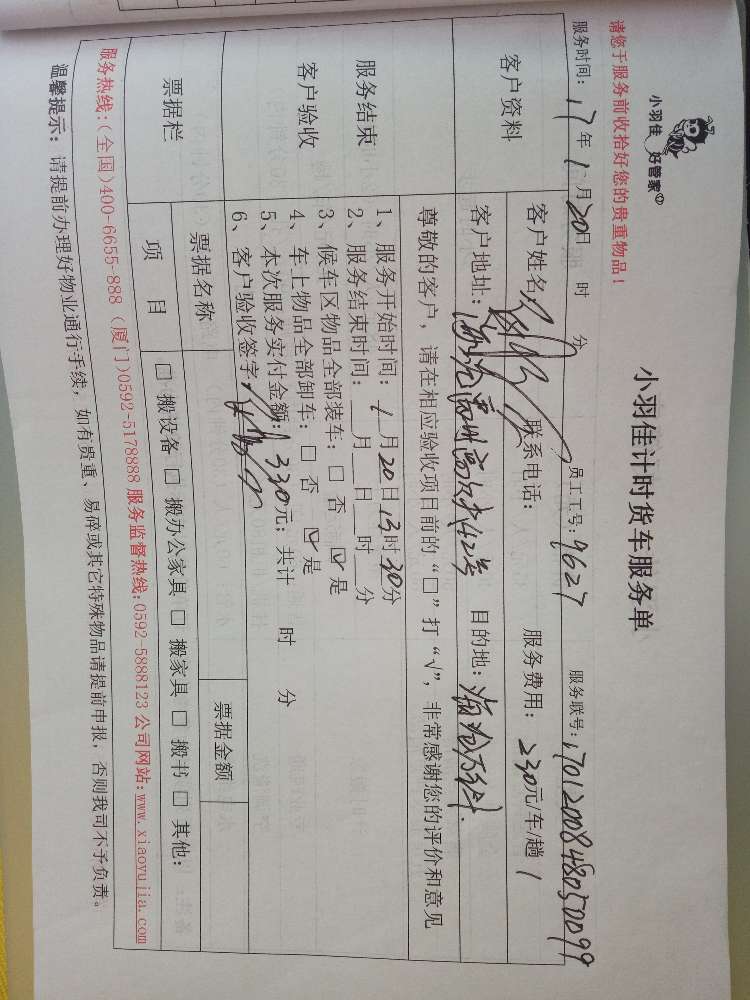 小羽佳 好管家
小羽佳计时货车服务单
请您于服务前收拾好您的贵重物品!
服务时间: 17年 1 月 20日 时 分 员工工号: 9627 服务联号: 1701200848050099
客户资料
客户姓名: 联系电话: 服务费用: 230元/车/趟 1
客户地址: 海沧 目的地: 海沧
尊敬的客户, 请在相应验收项目前的“□”打“√”, 非常感谢您的评价和意见
服务结束
客户验收
1、服务开始时间: 1月20日13时30分
2、服务结束时间: 月 日 时 分
3、候车区物品全部装车: □ 否 ☑ 是
4、车上物品全部卸车: □ 否 ☑ 是
5、本次服务实付金额: 330元; 共计 时 分
6、客户验收签字:
票据栏
票据名称 票据金额
项 目 □ 搬设备 □ 搬办公家具 □ 搬家具 □ 搬书 □ 其他:
服务热线:(全国)400-6655-888 (厦门)0592-5178888 服务监督热线:0592-5888123 公司网站:www.xiaoyujia.com
温馨提示: 请提前办理好物业通行手续, 如有贵重、易碎或其它特殊物品请提前申报, 否则我司不予负责。